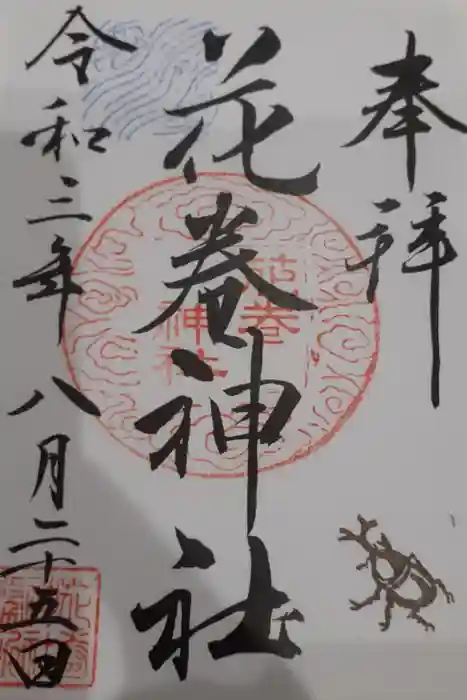 奉拝
花巻神社
花巻
神社
令和三年八月二十五日